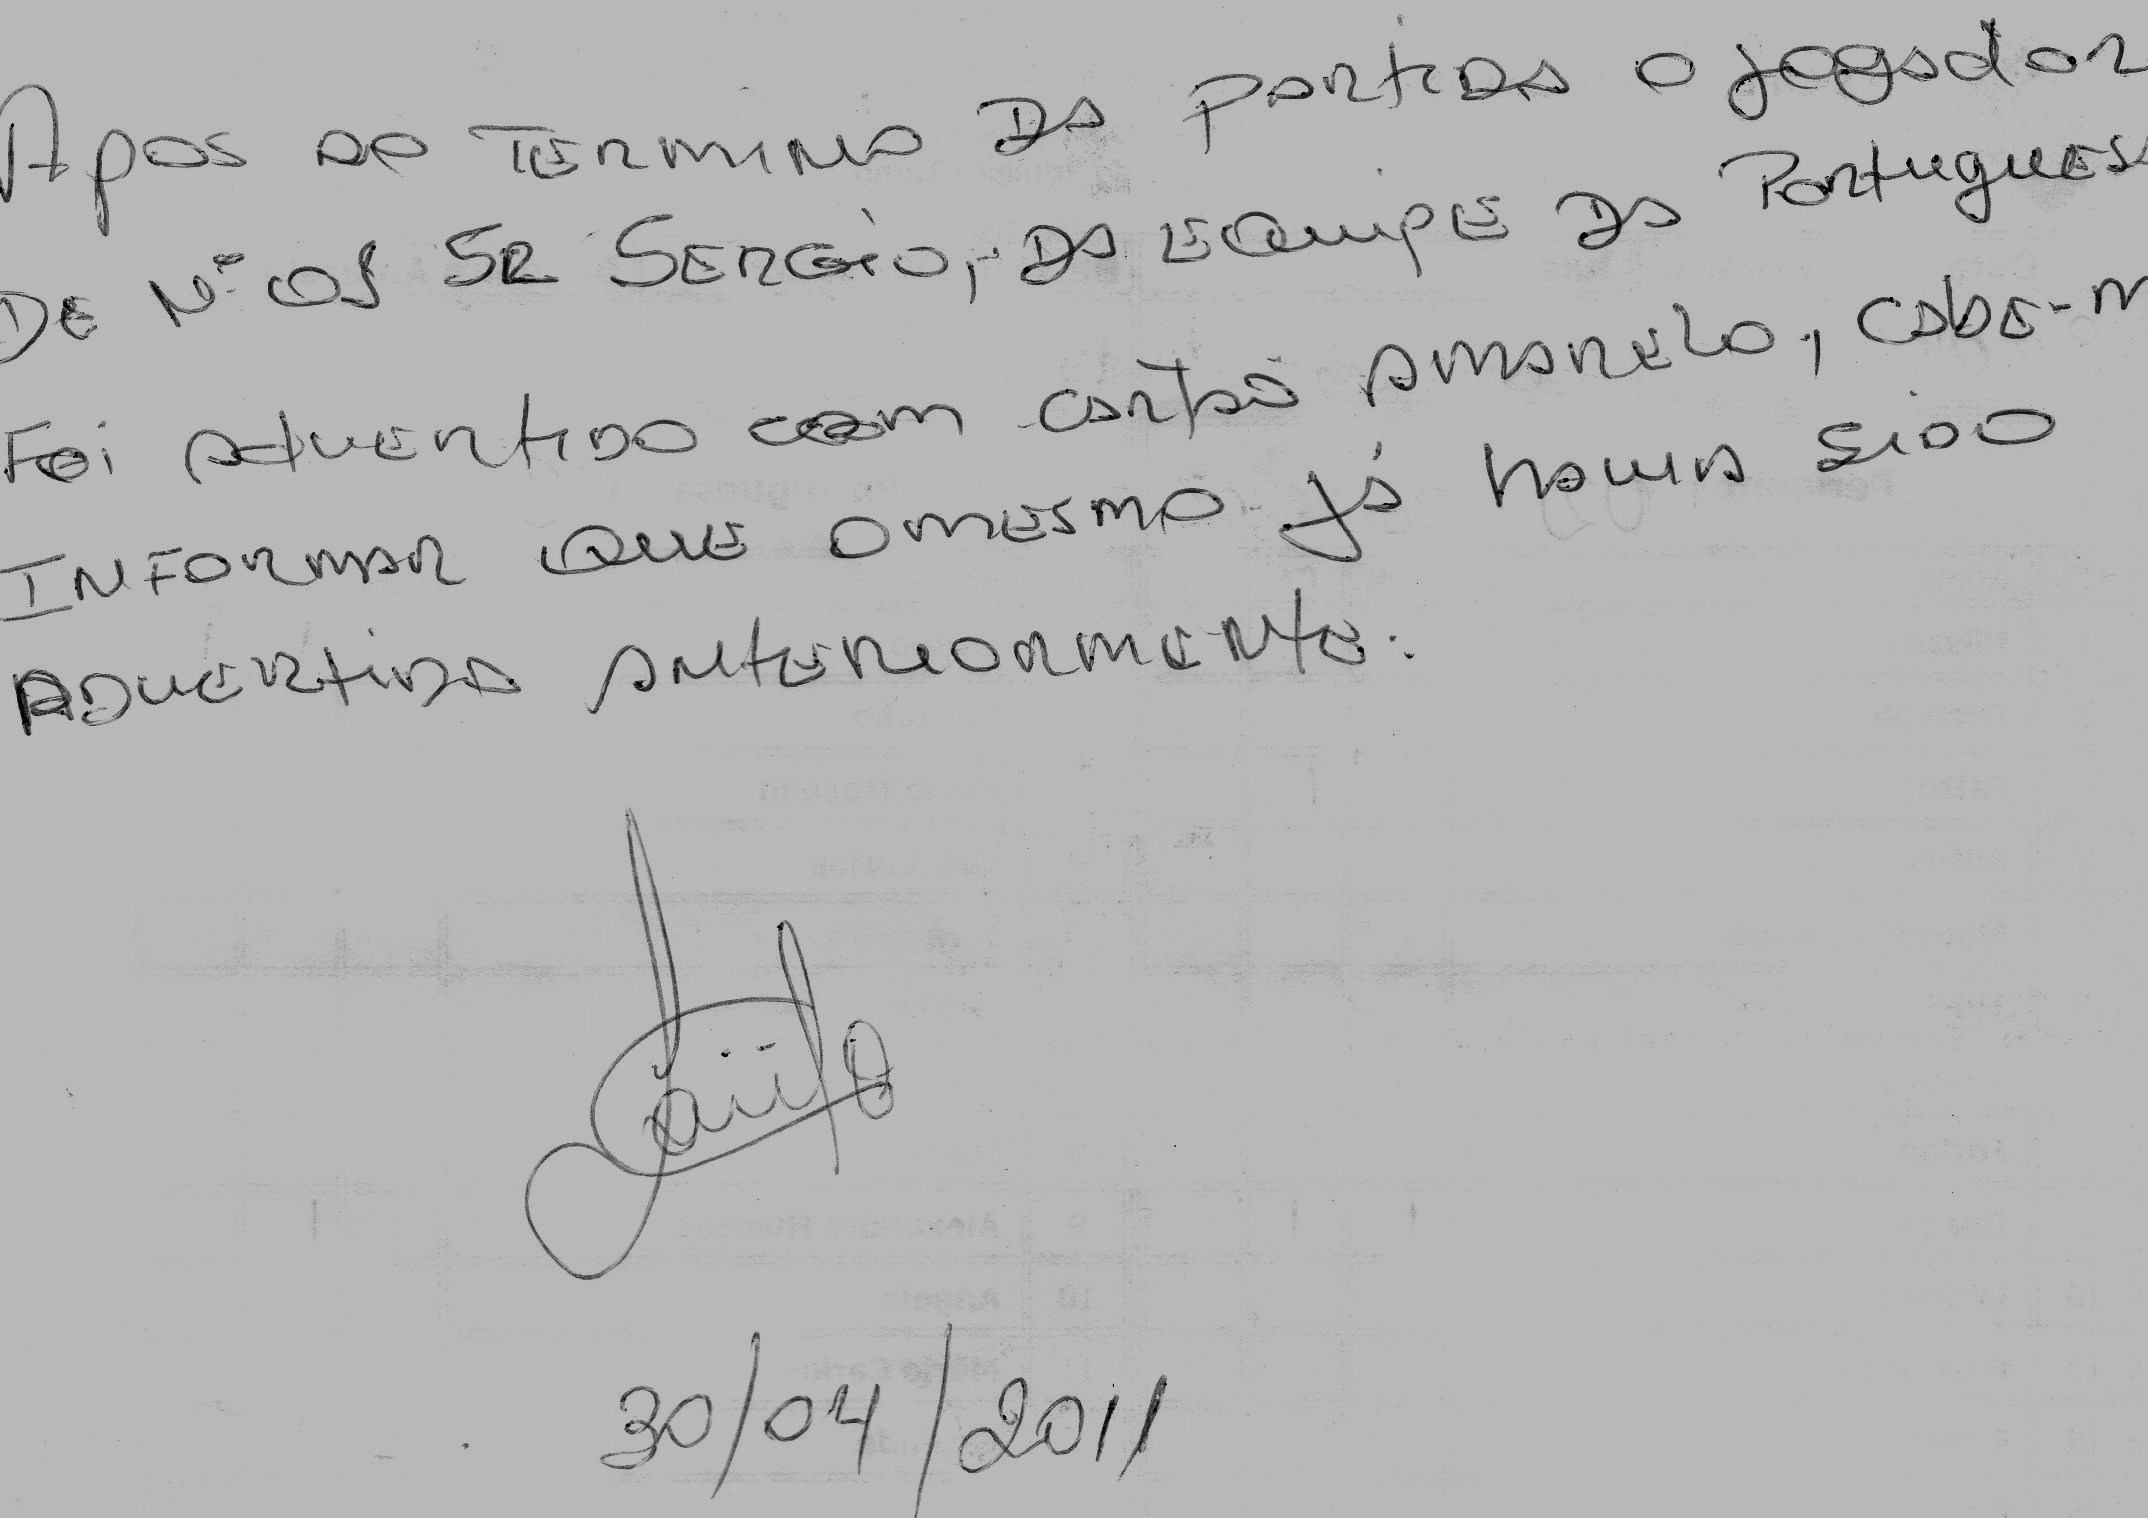 Apos ao TERMINO DA partida o jogador
DE Nº 05 SR SERGIO, DA EQUIPE DA Portugues
Foi advertido com cartão AMARELO, cabe-m
INFORMAR QUE o mesmo já havia sido
ADVERTIDA anteriormente.
30/04/2011